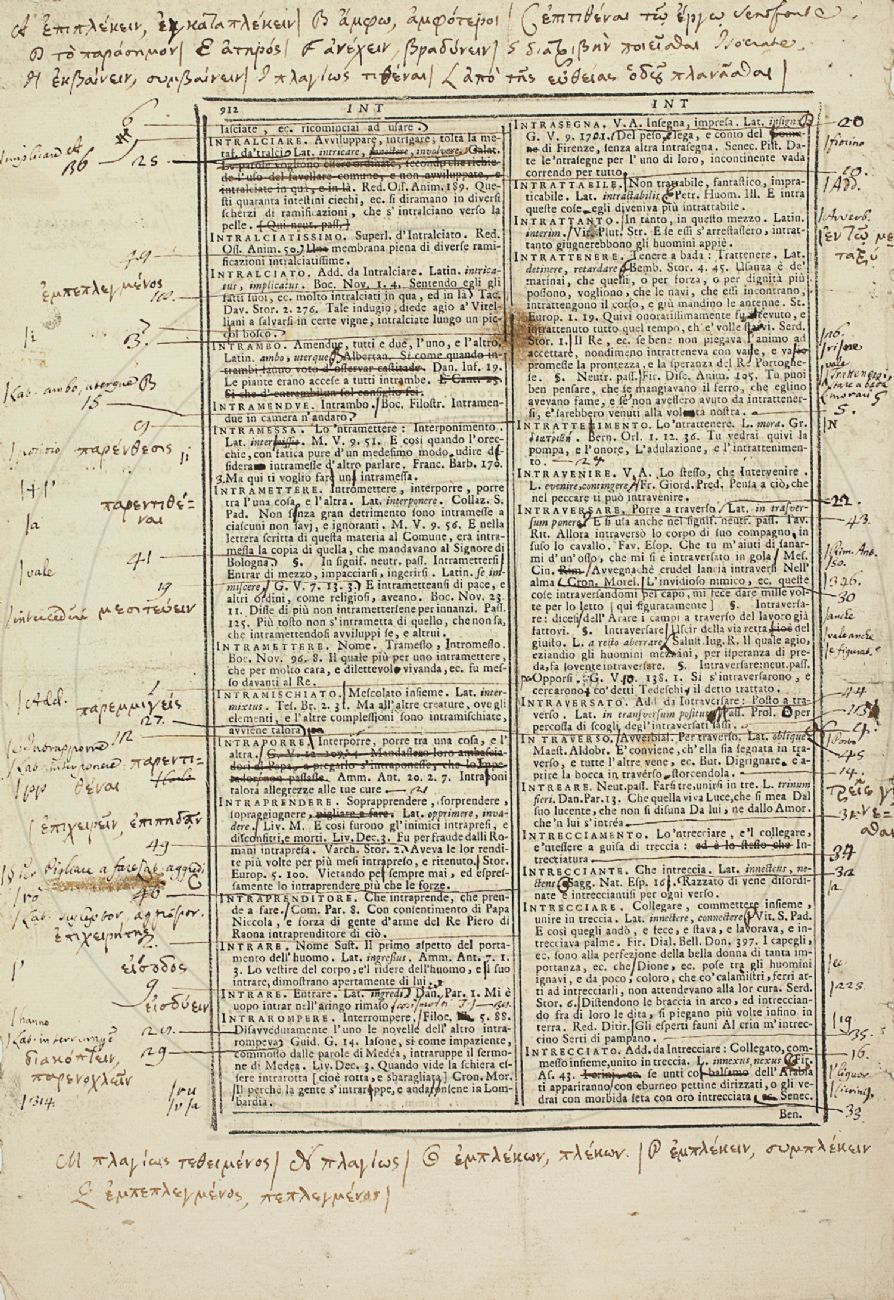 A ἐπιπλέκειν, ἐγκαταπλέκειν| B ἄμφω, ἀμφότεροι| C ἐπιτιθέναι τῷ ἔργῳ
D τὸ παράσημον| E ἀτηρός| F ἀνέχειν, βραδύνειν| διατριβὴν ποιεῖσθαι
H ἐκβαίνειν, συμβαίνειν| πλαγίως τιθέναι| L ἀπὸ τῆς εὐθείας ὁδοῦ πλανᾶσθαι|
912 INT
INT
lasciate, ec. ricominciai ad usare.
INTRALCIARE. Avviluppare, intrigare; tolta la me-
taf. da tralcio Lat. intricare, involvere. Galat.
de l'uso del favellare comune, e non avviluppate, e
intralciate in quì, e in là. Red. Oss. Anim. 189. Que-
sti quaranta intestini ciechi, ec. si diramano in diversi
scherzi di ramificazioni, che s'intralciano verso la
pelle. (Qui neut. pass.)
INTRALCIATISSIMO. Superl. d'Intralciato. Red.
Oss. Anim. 50. Una membrana piena di diverse rami-
ficazioni intralciatissime.
INTRALCIATO. Add. da Intralciare. Latin. intrica-
tus, implicatus. Boc. Nov. 1. 4. Sentendo egli gli
fatti suoi, ec. molto intralciati in qua, ed in là Tac.
Dav. Stor. 2. 276. Tale indugio, diede agio a' Vitel-
liani a salvarsi in certe vigne, intralciate lungo un pic-
col bosco.
INTRAMBO. Amendue, tutti e due, l'uno, e l'altro.
Latin. ambo, uterque Albertan. Sì come quando in-
trambi fanno voto d'osservar castitade. Dan. Inf. 19.
Le piante erano accese a tutti intrambe. E Cant. 25.
Sì che d'entrambi un sol consiglio fei.
INTRAMENDUE. Intrambo. Boc. Filostr. Intramen-
due in camera n'andaro.
INTRAMESSA. Lo 'ntramettere: Interponimento.
Lat. M. V. 9. 51. E così quando l'orec-
chie, con fatica pure d'un medesimo modo udire di-
sidera intramesse d'altro parlare. Franc. Barb. 176.
3. Ma qui ti voglio fare una intramessa.
INTRAMETTERE. Intromettere, interporre, porre
tra l'una cosa, e l'altra. Lat. interponere. Collaz. S.
Pad. Non senza gran detrimento sono intramesse a
ciascuni non savj, e ignoranti. M. V. 9. 56. E nella
lettera scritta di questa materia al Comune, era intra-
messa la copia di quella, che mandavano al Signore di
Bologna. §. In signif. neutr. pass. Intramettersi
Entrar di mezzo, impacciarsi, ingerirsi. Latin. se im-
miscere. G. V. 7. 13. 3. E intrametteansi di pace, e
altri ordini, come religiosi, aveano. Boc. Nov. 23.
11. Disse di più non intramettersene per innanzi. Pass.
125. Più tosto non s'intrametta di quello, che non sa,
che intramettendosi avviluppi se, e altrui.
INTRAMETTERE. Nome. Tramesso, Intromesso.
Boc. Nov. 96. 8. Il quale più per uno intramettere,
che per molto cara, e dilettevole vivanda, ec. fu mes-
so davanti al Re.
INTRAMISCHIATO. Mescolato insieme. Lat. inter-
mixtus. Tes. Br. 2. 31. Ma all'altre creature, ove gli
elementi, e l'altre complessioni sono intramischiate,
avviene talora
INTRAPORRE. Interporre, porre tra una cosa, e l'
altra. Amm. Ant. 20. 2. 7. Intraponi
talora allegrezze alle tue cure
INTRAPRENDERE. Soprapprendere, sorprendere,
sopraggiugnere, pigliare a fare. Lat. opprimere, inva-
dere. Liv. M. E così furono gl'inimici intrapresi, e
disconfitti, e morti. Liv. Dec. 3. Fu per fraude dalli Ro-
mani intrapresa. Varch. Stor. 2. Aveva le lor rendi-
te più volte per più mesi intrapreso, e ritenuto. Stor.
Europ. 5. 100. Vietando per sempre mai, ed espres-
samente lo intraprendere più che le forze.
INTRAPRENDITORE. Che intraprende, che pren-
de a fare. Com. Par. 8. Con consentimento di Papa
Niccola, e forza di gente d'arme del Re Piero di
Raona intraprenditore di ciò.
INTRARE. Nome Sust. Il primo aspetto del porta-
mento dell'huomo. Lat. ingressus. Amm. Ant. 7. 1.
3. Lo vestire del corpo, e'l ridere dell'huomo, e il suo
intrare, dimostrano apertamente di lui.
INTRARE. Entrare. Lat. ingredi. Dan. Par. 1. Mi è
uopo intrar nell'aringo rimaso
INTRAROMPERE. Interrompere. Filoc. 5. 88.
Disavvedutamente l'uno le novelle dell'altro intra-
rompeva. Guid. G. 14. Iasone, sì come impaziente,
commosso dalle parole di Medea, intraruppe il sermo-
ne di Medea. Liv. Dec. 3. Quando vide la schiera es-
sere intrarotta [cioè rotta, e sbaragliata] Cron. Mor.
Il perchè la gente s'intraroppe, e andassene in Lom-
bardia.
INTRASEGNA. V. A. Insegna, impresa. Lat. insigne.
G. V. 9. 170. 1. Del peso, lega, e conio del
di Firenze, senza altra intrasegna. Senec. Pist. Da-
te le 'ntrasegne per l'uno di loro, incontinente vada
correndo per tutto.
INTRATTABILE. Non trattabile, fantastico, impra-
ticabile. Lat. intractabilis. Petr. Huom. Ill. E intra
queste cose egli diveniva più intrattabile.
INTRATTANTO. In tanto, in questo mezzo. Latin.
interim. Vit. Plut. Str. E se essi s'arrestassero, intrat-
tanto giugnerebbono gli huomini appiè.
INTRATTENERE. Tenere a bada: Trattenere. Lat.
detinere, retardare. Bemb. Stor. 4. 45. Usanza è de'
marinai, che quelli, o per forza, o per dignità più
possono, vogliono, che le navi, che essi incontrano,
intrattengono il corso, e giù mandino le antenne. St.
Europ. 1. 19. Quivi onoratissimamente fu ricevuto, e
intrattenuto tutto quel tempo, ch'e' volle starvi. Serd.
Stor. 1. Il Re, ec. se bene non piegava l'animo ad
accettare, nondimeno intratteneva con varie, e vaste
promesse la prontezza, e la speranza del R. Portoghe-
se. §. Neutr. pass. Fir. Disc. Anim. 105. Tu puoi
ben pensare, che se mangiavano il ferro, che eglino
avevano fame, e se non avessero avuto da intrattener-
si, e' sarebbero venuti alla volta nostra.
INTRATTENIMENTO. Lo 'ntrattenere. L. mora. Gr.
διατριβή. Bern. Orl. 1. 12. 36. Tu vedrai quivi la
pompa, e l'onore, L'adulazione, e l'intrattenimen-
to.
INTRAVENIRE. V. A. Lo stesso, che Intervenire.
L. evenire, contingere. Fr. Giord. Pred. Pensa a ciò, che
nel peccare ti può intravenire.
INTRAVERSARE. Porre a traverso. Lat. in trasver-
sum ponere. E si usa anche nel signif. neutr. pass. Tav.
Rit. Allora intraversò lo corpo di suo compagno in
suso lo cavallo. Fav. Esop. Che tu m'aiuti di sanar-
mi d'un'osso, che mi si è intraversato in gola. Mes.
Cin. Rim. Avvegnachè crudel lancia intraversi Nell'
alma. Cron. Morel. L'invidioso nimico, ec. queste
cose intraversandomi pel capo, mi fece dare mille vol-
te per lo letto [qui figuratamente] §. Intraversa-
re: dicesi dell'Arare i campi a traverso del lavoro già
fattovi. §. Intraversare. Uscir della via retta del
giusto. L. a recto aberrare. Salust. Iug. R. Il quale agio,
eziandio gli huomini mezzani, per isperanza di pre-
da, fa sovente intraversare. §. Intraversare: neut. pass.
Opporsi. G. V. 10. 138. 1. Sì s'intraversarono, e
cercarono co' detti Tedeschi il detto trattato.
INTRAVERSATO. Add. da Intraversare: Posto a tra-
verso. Lat. in transversum positus. Pass. Prol. O per
percossa di scogli degl'intraversati sassi.
IN TRAVERSO. Avverbial. Per traverso. Lat. oblique.
Maest. Aldobr. E' conviene, ch'ella sia segnata in tra-
verso, e tutte l'altre vene, ec. But. Digrignare, è a-
prire la bocca in traverso storcendola.
INTREARE. Neut. pass. Farsi tre, unirsi in tre. L. trinum
fieri. Dan. Par. 13. Che quella viva Luce, che si mea Dal
suo lucente, che non si disuna Da lui, ne dallo Amor,
che 'n lui s'intrea.
INTRECCIAMENTO. Lo 'ntrecciare, e'l collegare,
e 'ntessere a guisa di treccia: ed è lo stesso che In-
trecciatura.
INTRECCIANTE. Che intreccia. Lat. innectens, ne-
ctens. Sagg. Nat. Esp. Razzato di vene disordi-
nate e intreccianti si per ogni verso.
INTRECCIARE. Collegare, commettere insieme,
unire in treccia. Lat. innectere, connectere. Vit. S. Pad.
E così quegli andò, e fece, e stava, e lavorava, e in-
trecciava palme. Fir. Dial. Bell. Don. 397. I capegli,
ec. sono alla perfezione della bella donna di tanta im-
portanza, ec. che Dione, ec. pose tra gli huomini
ignavi, e da poco, coloro, che co' calamistri, ferri at-
ti ad intrecciarli, non attendevano alla lor cura. Serd.
Stor. 6. Distendono le braccia in arco, ed intreccian-
do fra di loro le dita, si piegano più volte infino in
terra. Red. Ditir. Gli esperti fauni Al crin m'intrec-
cino Serti di pampano.
INTRECCIATO. Add. da Intrecciare: Collegato, com-
messo insieme, unito in treccia. L. innexus, nexus. Fir.
As. 43. se unti co' balsimo dell'Arabia
ti appariranno con eburneo pettine dirizzati, o gli ve-
drai con morbida seta con oro intrecciata ec. Senec.
Ben.
25.
ἐμπεπλεγμένος
15
παρένθεσις
παρεντιθέ-
ναι
41
vale
19
μεσιτεύειν
Add.
παρεμμιγείς
27.
παρεντι-
θέναι
ἐπιχειρεῖν, ἐπιπηδᾶν
49
40
ἐπιχειρητής
εἴσοδος
9
εἰσδύειν
hanno
29
διακόπτειν,
παρενοχλεῖν
1314.
20
fiorino
Add.
ἐν τῷ με-
ταξύ
5.
N
22.
43.
346.
30
anche
vale anche
44
45
14.
34
32
225.
119
35.
16.
33
M πλαγίως τεθειμένος| N πλαγίως| O ἐμπλέκων, πλέκων.| P ἐμπλέκειν, συμπλέκειν
Q ἐμπεπλεγμένος, πεπλεγμένος|